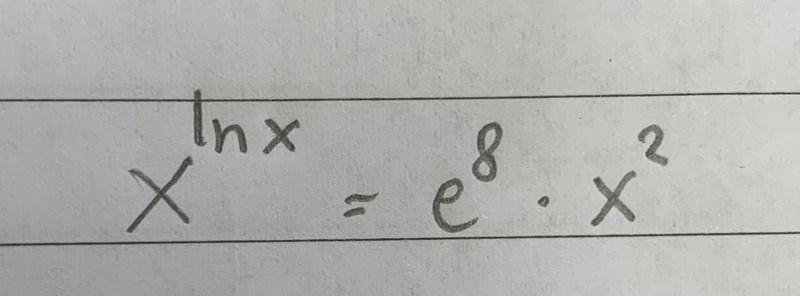 x^{ln x} = e^8 · x^2